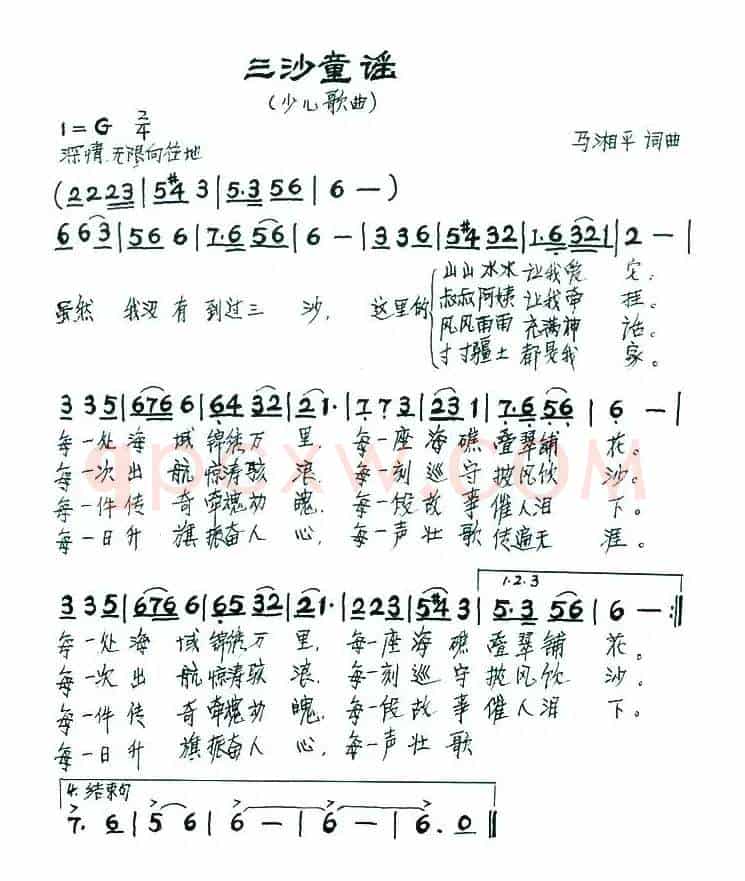 三沙童谣
(少儿歌曲)
1=G 2/4
深情、无限向往地
马湘平 词曲
(2 2 2 3 | 5 #4 3 | 5. 3 5 6 | 6 — )
6 6 3 | 5 6 6 | 7. 6 5 6 | 6 — | 3 3 6 | 5 #4 3 2 | 1. 6 3 2 1 | 2 — |
虽然 我没有到过三沙, 这里的
山山水水 让我爱它.
叔叔阿姨 让我牵挂.
风风雨雨 充满神话.
寸寸疆土 都是我家。
3 3 5 | 6 7 6 6 | 6 4 3 2 | 2 1 · | 7 7 3 | 2 3 5 | 7. 6 5 6 | 6 — |
每一处海域锦绣万里, 每一座海礁叠翠铺花.
每一次出航惊涛骇浪, 每一刻巡守披风饮沙.
每一件传奇牵魂动魄, 每一段故事催人泪下.
每一日升旗振奋人心, 每一声壮歌传遍天涯.
3 3 5 | 6 7 6 6 | 6 5 3 2 | 2 1 · | 2 2 3 | 5 #4 3 | 5. 3 5 6 | 6 — :||
1.2.3
每一处海域锦绣万里, 每一座海礁叠翠铺花.
每一次出航惊涛骇浪, 每一刻巡守披风饮沙.
每一件传奇牵魂动魄, 每一段故事催人泪下.
每一日升旗振奋人心, 每一声壮歌
4. 结束句
7. 6 | 5 6 | 6 — | 6 — | 6. 0 ||
qpcxw.com